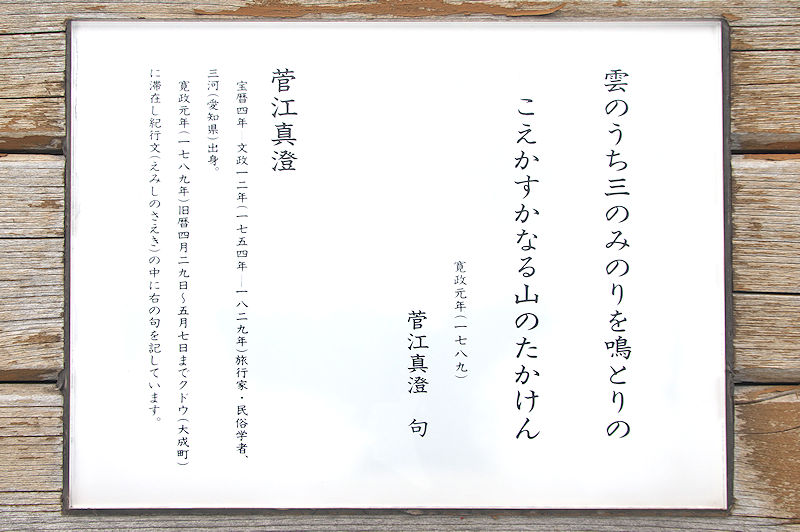 雲のうち三のみのりを鳴とりの
こえかすかなる山のたかけん
寛政元年(一七八九)
菅江真澄 句
菅江真澄
宝暦四年―文政一二年(一七五四年―一八二九年)旅行家・民俗学者、
三河(愛知県)出身。
寛政元年(一七八九年)旧暦四月二九日~五月七日までクドウ(大成町)
に滞在し紀行文(えみしのさえき)の中に右の句を記しています。